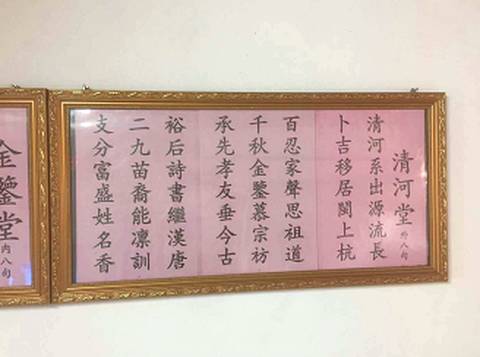 清河堂 內八句
清河系出源流長
卜吉移居閩上杭
百忍家聲思祖道
千秋金鑒慕宗坊
承先孝友垂今古
裕后詩書繼漢唐
二九苗裔能凛訓
支分富盛姓名香
金鑒堂 內八句